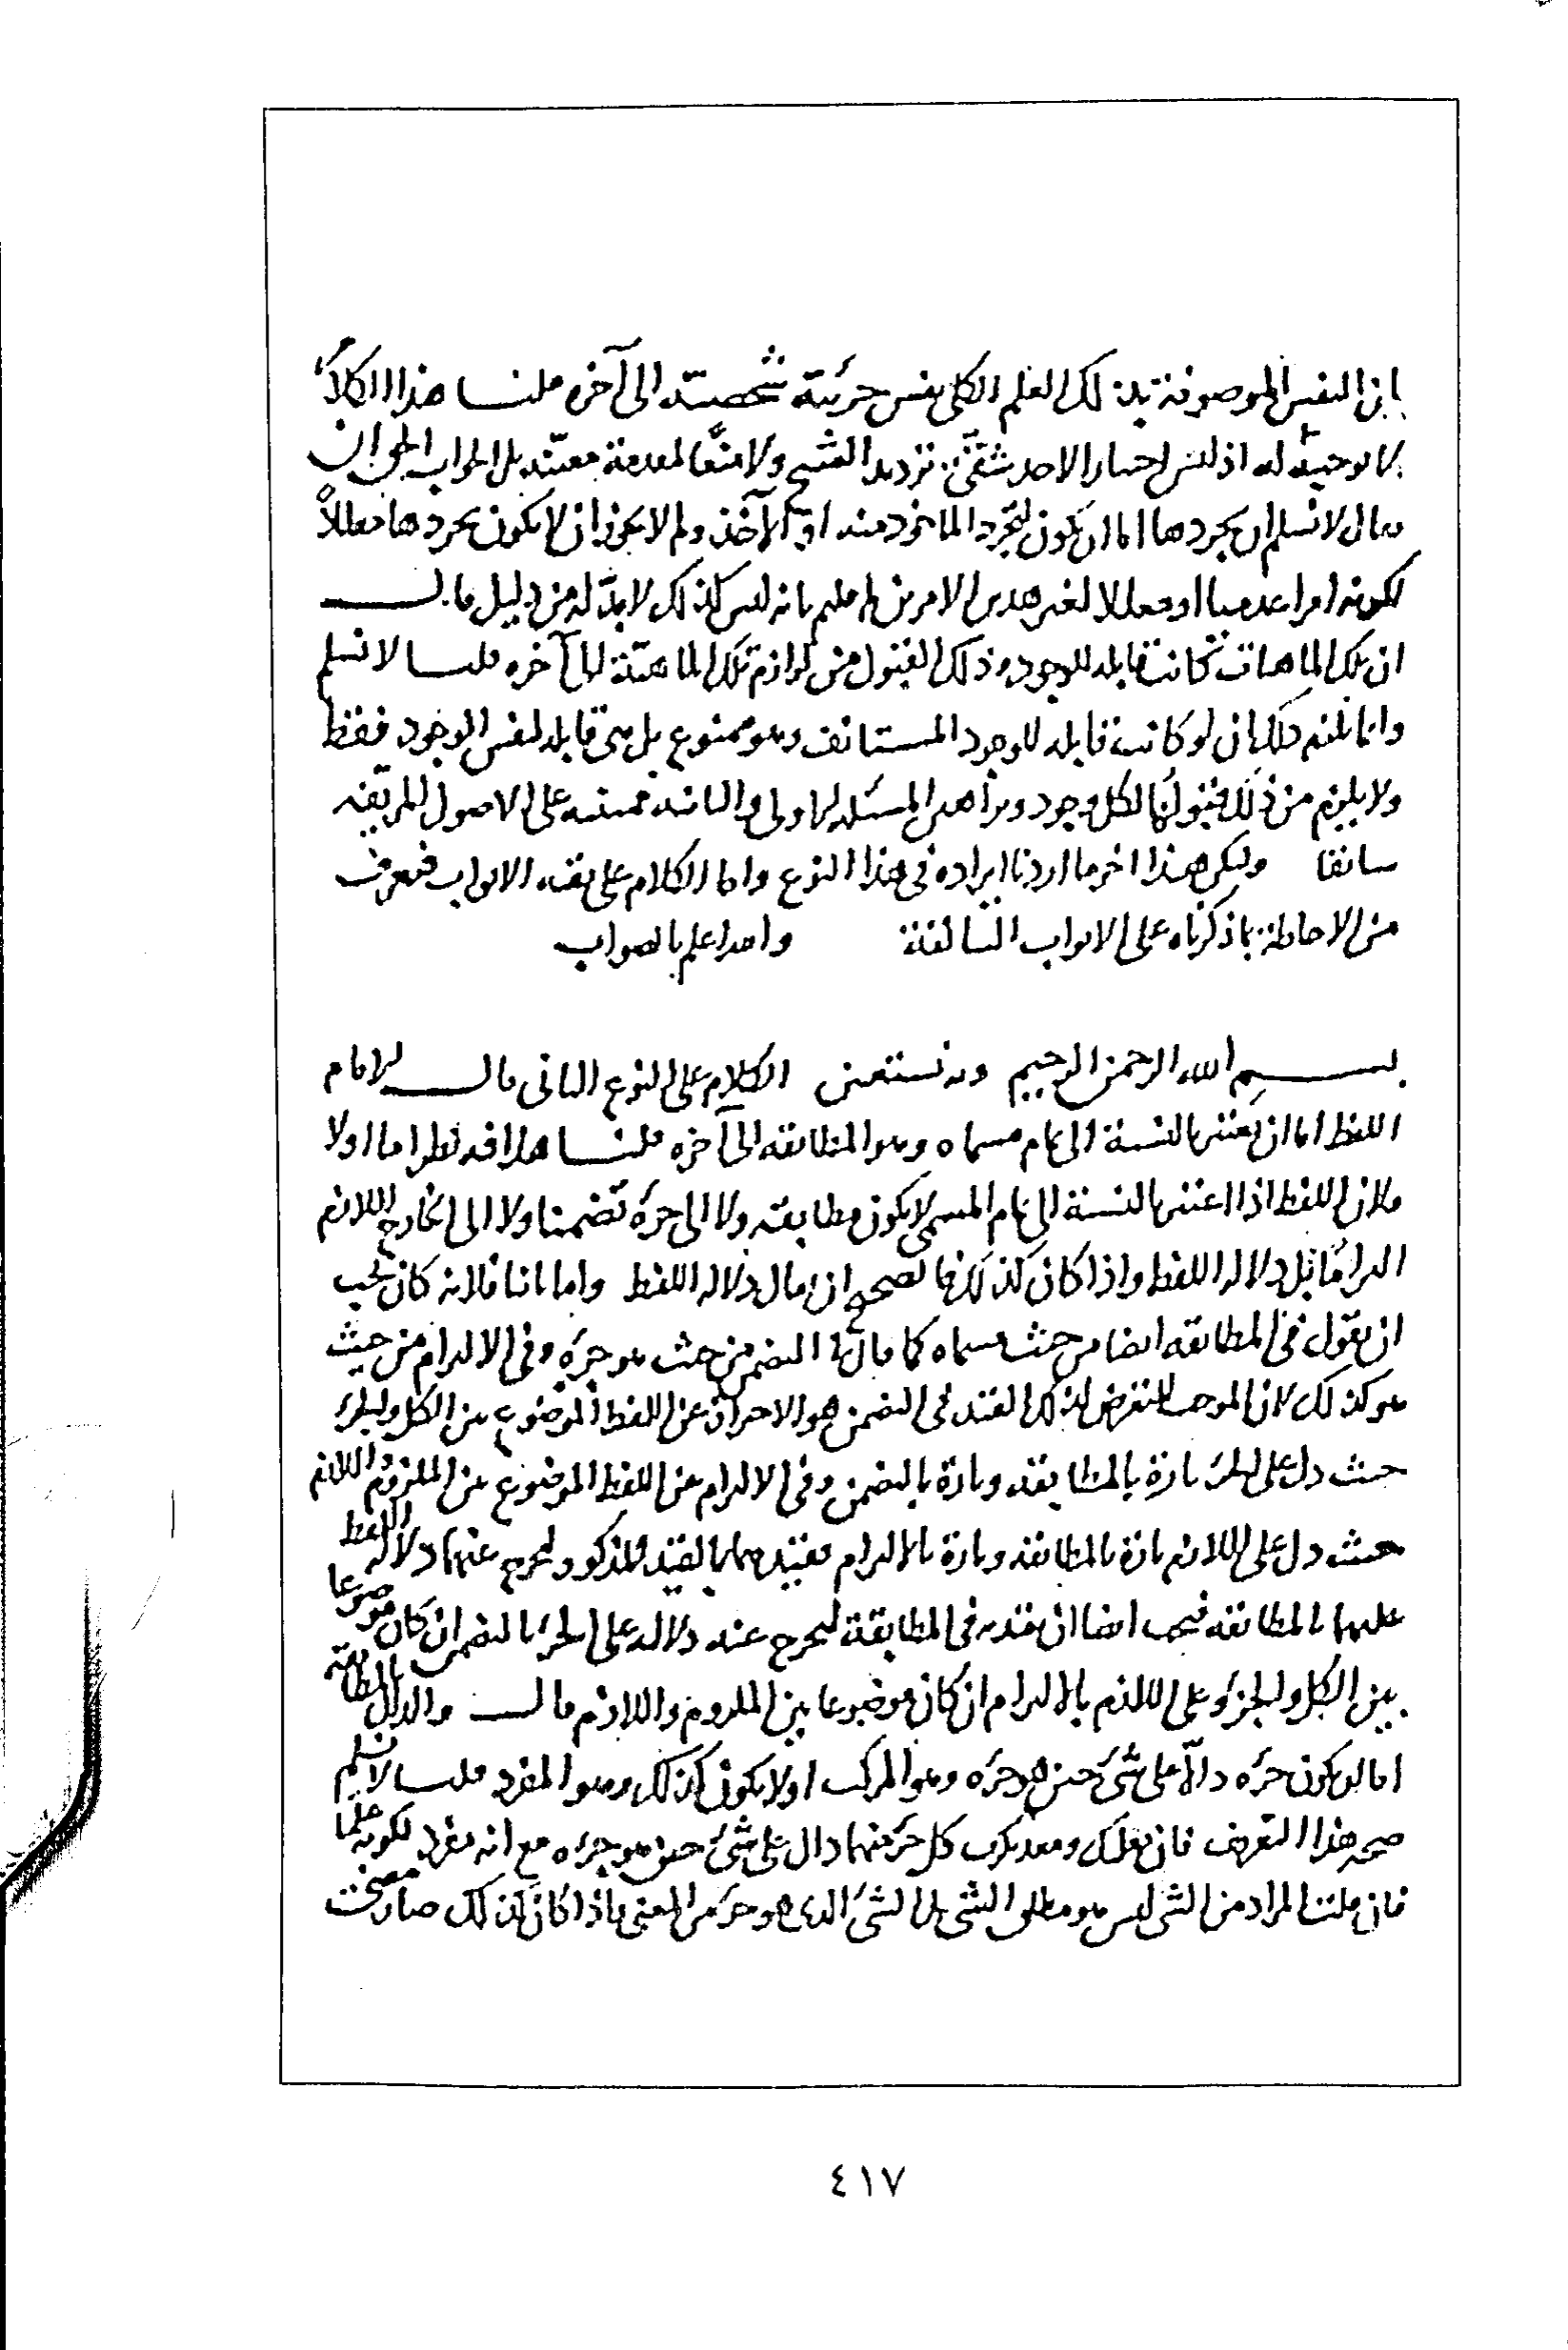 بان النفس الموصوفة بذلك العلم الكلي نفس جزئية شخصية الى آخره قلنا هذا الكلام
لا توجيه له اذ ليس اختيارا لاحد شقي ترديد الشيخ ولا منعا لمقدمة معينة بل الجواب الحق ان
يقال لا نسلم ان تجردها اما ان يكون لتجرد الماخوذ منه او الآخذ ولم لا يجوز ان لا يكون تجردها معللا
لكونه امرا عدميا او معللا لغير هذين الامرين لم قلتم بانه ليس كذلك لا بد له من دليل قال
ان تلك الماهيات كانت قابلة للوجود وذلك القبول من لوازم تلك الماهية الى آخره قلنا لا نسلم
وانما يلزم ذلك ان لو كانت قابلة للوجود المستانف وهو ممنوع بل هي قابلة لنفس الوجود فقط
ولا يلزم من ذلك قبولها لكل وجود المسئلة الاولى والثانية مبنية على الاصول المزيفة
سابقا وليكن هذا اخر ما اردنا ايراده في هذا النوع واما الكلام على بقية الابواب فتعرف
من الاحاطة بما ذكرناه على الابواب السالفة والله اعلم بالصواب
بسم الله الرحمن الرحيم وبه نستعين الكلام على النوع الثاني قال الامام
اللفظ اما ان يعتبر بالنسبة الى تمام مسماه وهو المطابقة الى آخره قلنا هذا فيه نظر اما اولا
فلان اللفظ اذا اعتبر بالنسبة الى تمام المسمى لا يكون مطابقة ولا الى جزئه تضمنا ولا الى الخارج اللازم
التزاما بل دلالة اللفظ واذا كان كذلك فالصحيح ان يقال دلالة اللفظ واما ثانيا فلانه كان يجب
ان يقول في المطابقة ايضا من حيث هو مسماه كما قال في التضمن من حيث هو جزئه وفي الالتزام من حيث
هو كذلك لان الموجب للتعرض لذلك القيد في التضمن هو الاحتراز عن اللفظ الموضوع بين الكل والجزء
حيث دل على الجزء تارة بالمطابقة وتارة بالتضمن وفي الالتزام عن اللفظ الموضوع بين الملزوم واللازم
حيث دل على اللازم تارة بالمطابقة وتارة بالالتزام فقيدهما بالقيد المذكور ليخرج عنهما دلالة اللفظ
عليهما بالمطابقة فيجب ايضا ان يقيد به في المطابقة ليخرج عنه دلالته على الجزء بالتضمن ان كان موضوعا
بين الكل والجزء وعلى اللازم بالالتزام ان كان موضوعا بين الملزوم واللازم قال والدال بالمطابقة
اما ان يكون جزئه دالا على شئ حين هو جزئه وهو المركب او لا يكون كذلك وهو المفرد قلنا لا نسلم
صحة هذا التعريف فان بعلبك ومعديكرب كل جزء منهما دال على شئ حين هو جزئه مع انه مفرد لكونه علما
فان قلت المراد من الشئ ليس هو مطلق الشئ بل الشئ الذي هو جزء من المعنى فاذا كان كذلك صار
٤١٧